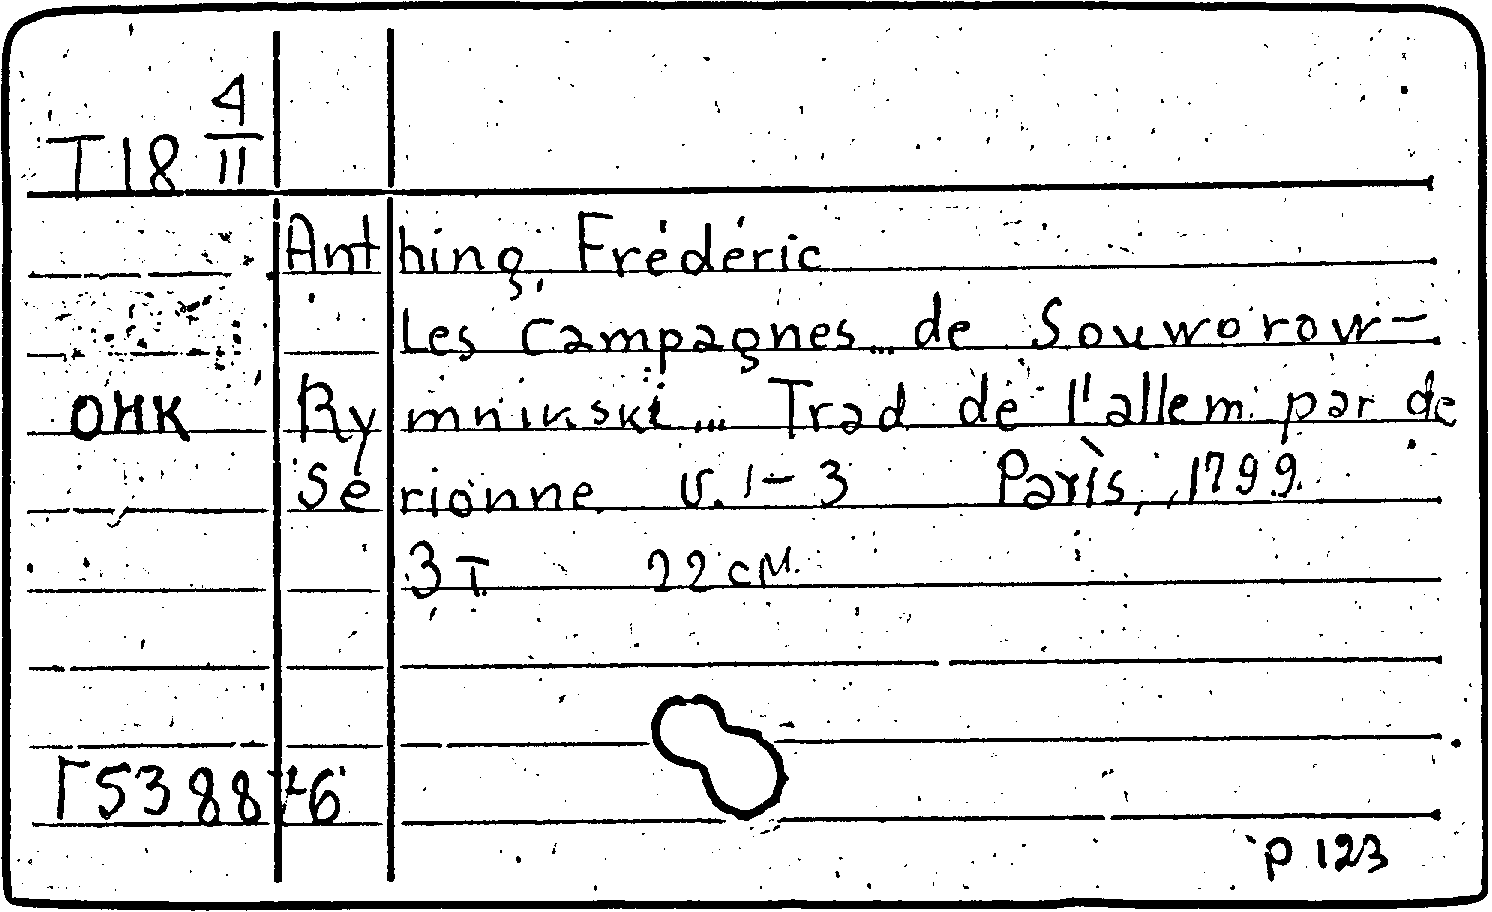 T18 4/11
Anthing, Frédéric
Les campagnes... de Souworow-
ОНК Rymnikski... Trad. de l'allem. par de
Serionne. V. 1-3 Paris, 1799.
3 т. 22 см.
Г53887-6
р 123